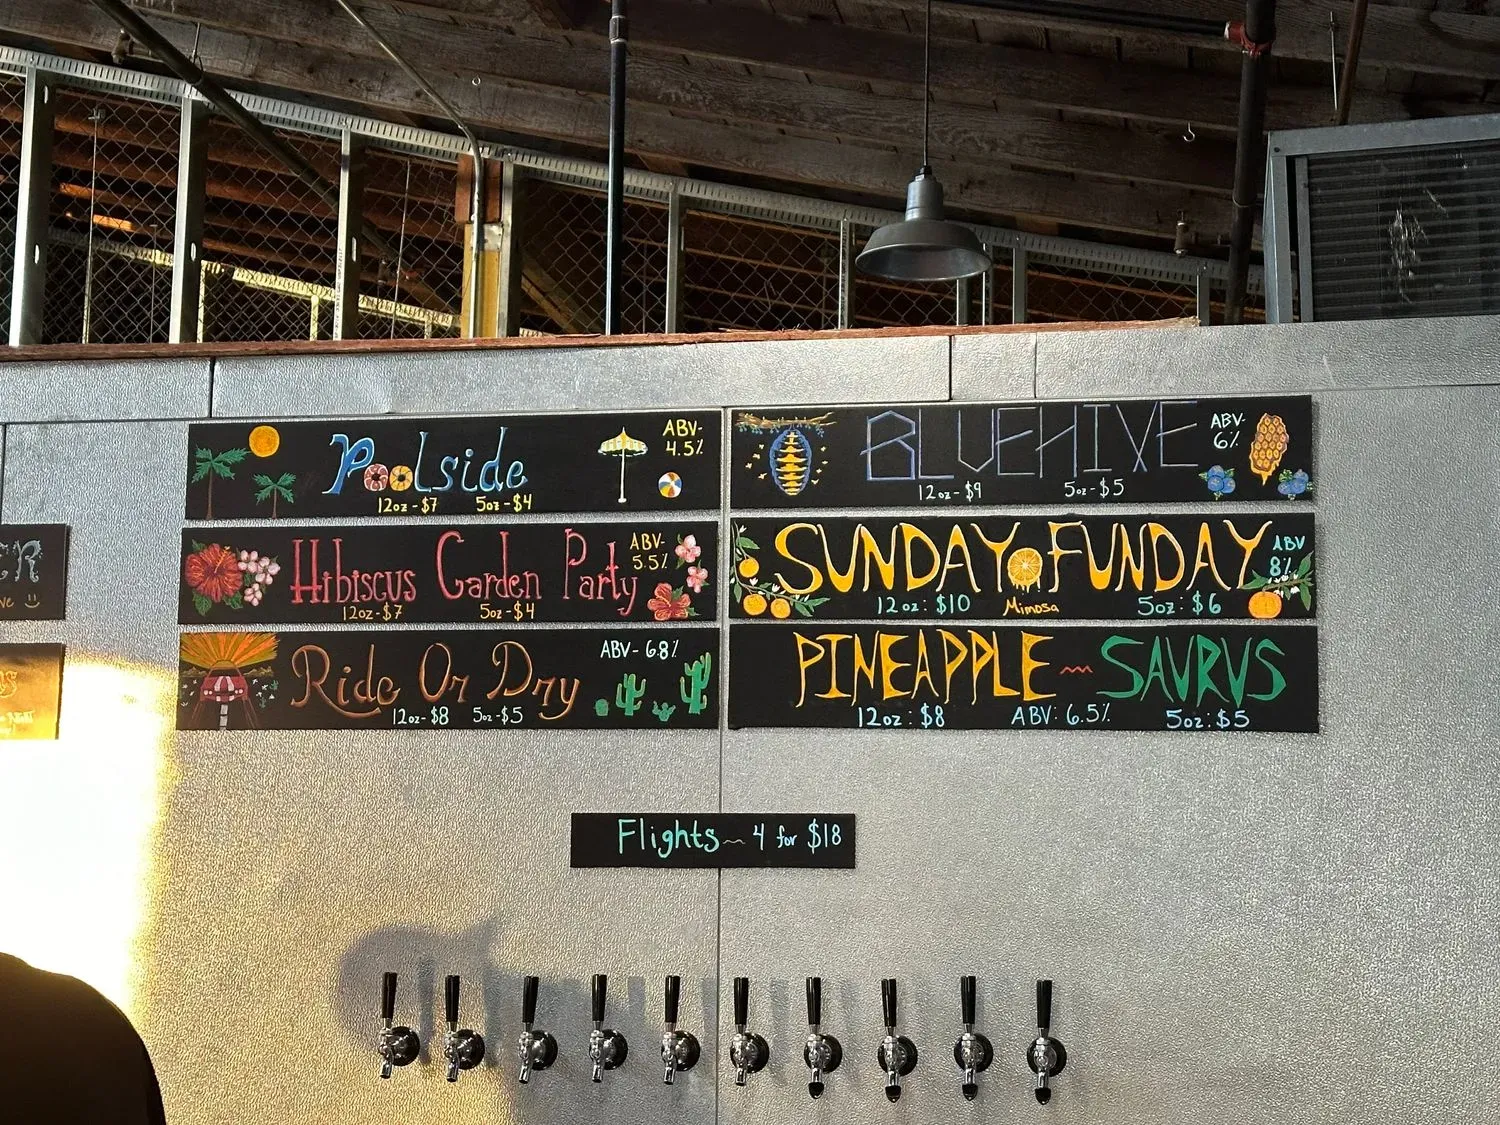 Poolside
ABV-
4.5%
12oz-$7 5oz-$4
Hibiscus Garden Party
ABV-
5.5%
12oz-$7 5oz-$4
Ride Or Dry
ABV- 6.8%
12oz-$8 5oz-$5
BLUEHIVE
ABV-
6%
12oz-$9 5oz-$5
SUNDAY FUNDAY
ABV
8%
12oz: $10 Mimosa 5oz: $6
PINEAPPLE~SAURUS
12oz: $8 ABV: 6.5% 5oz: $5
Flights~ 4 for $18